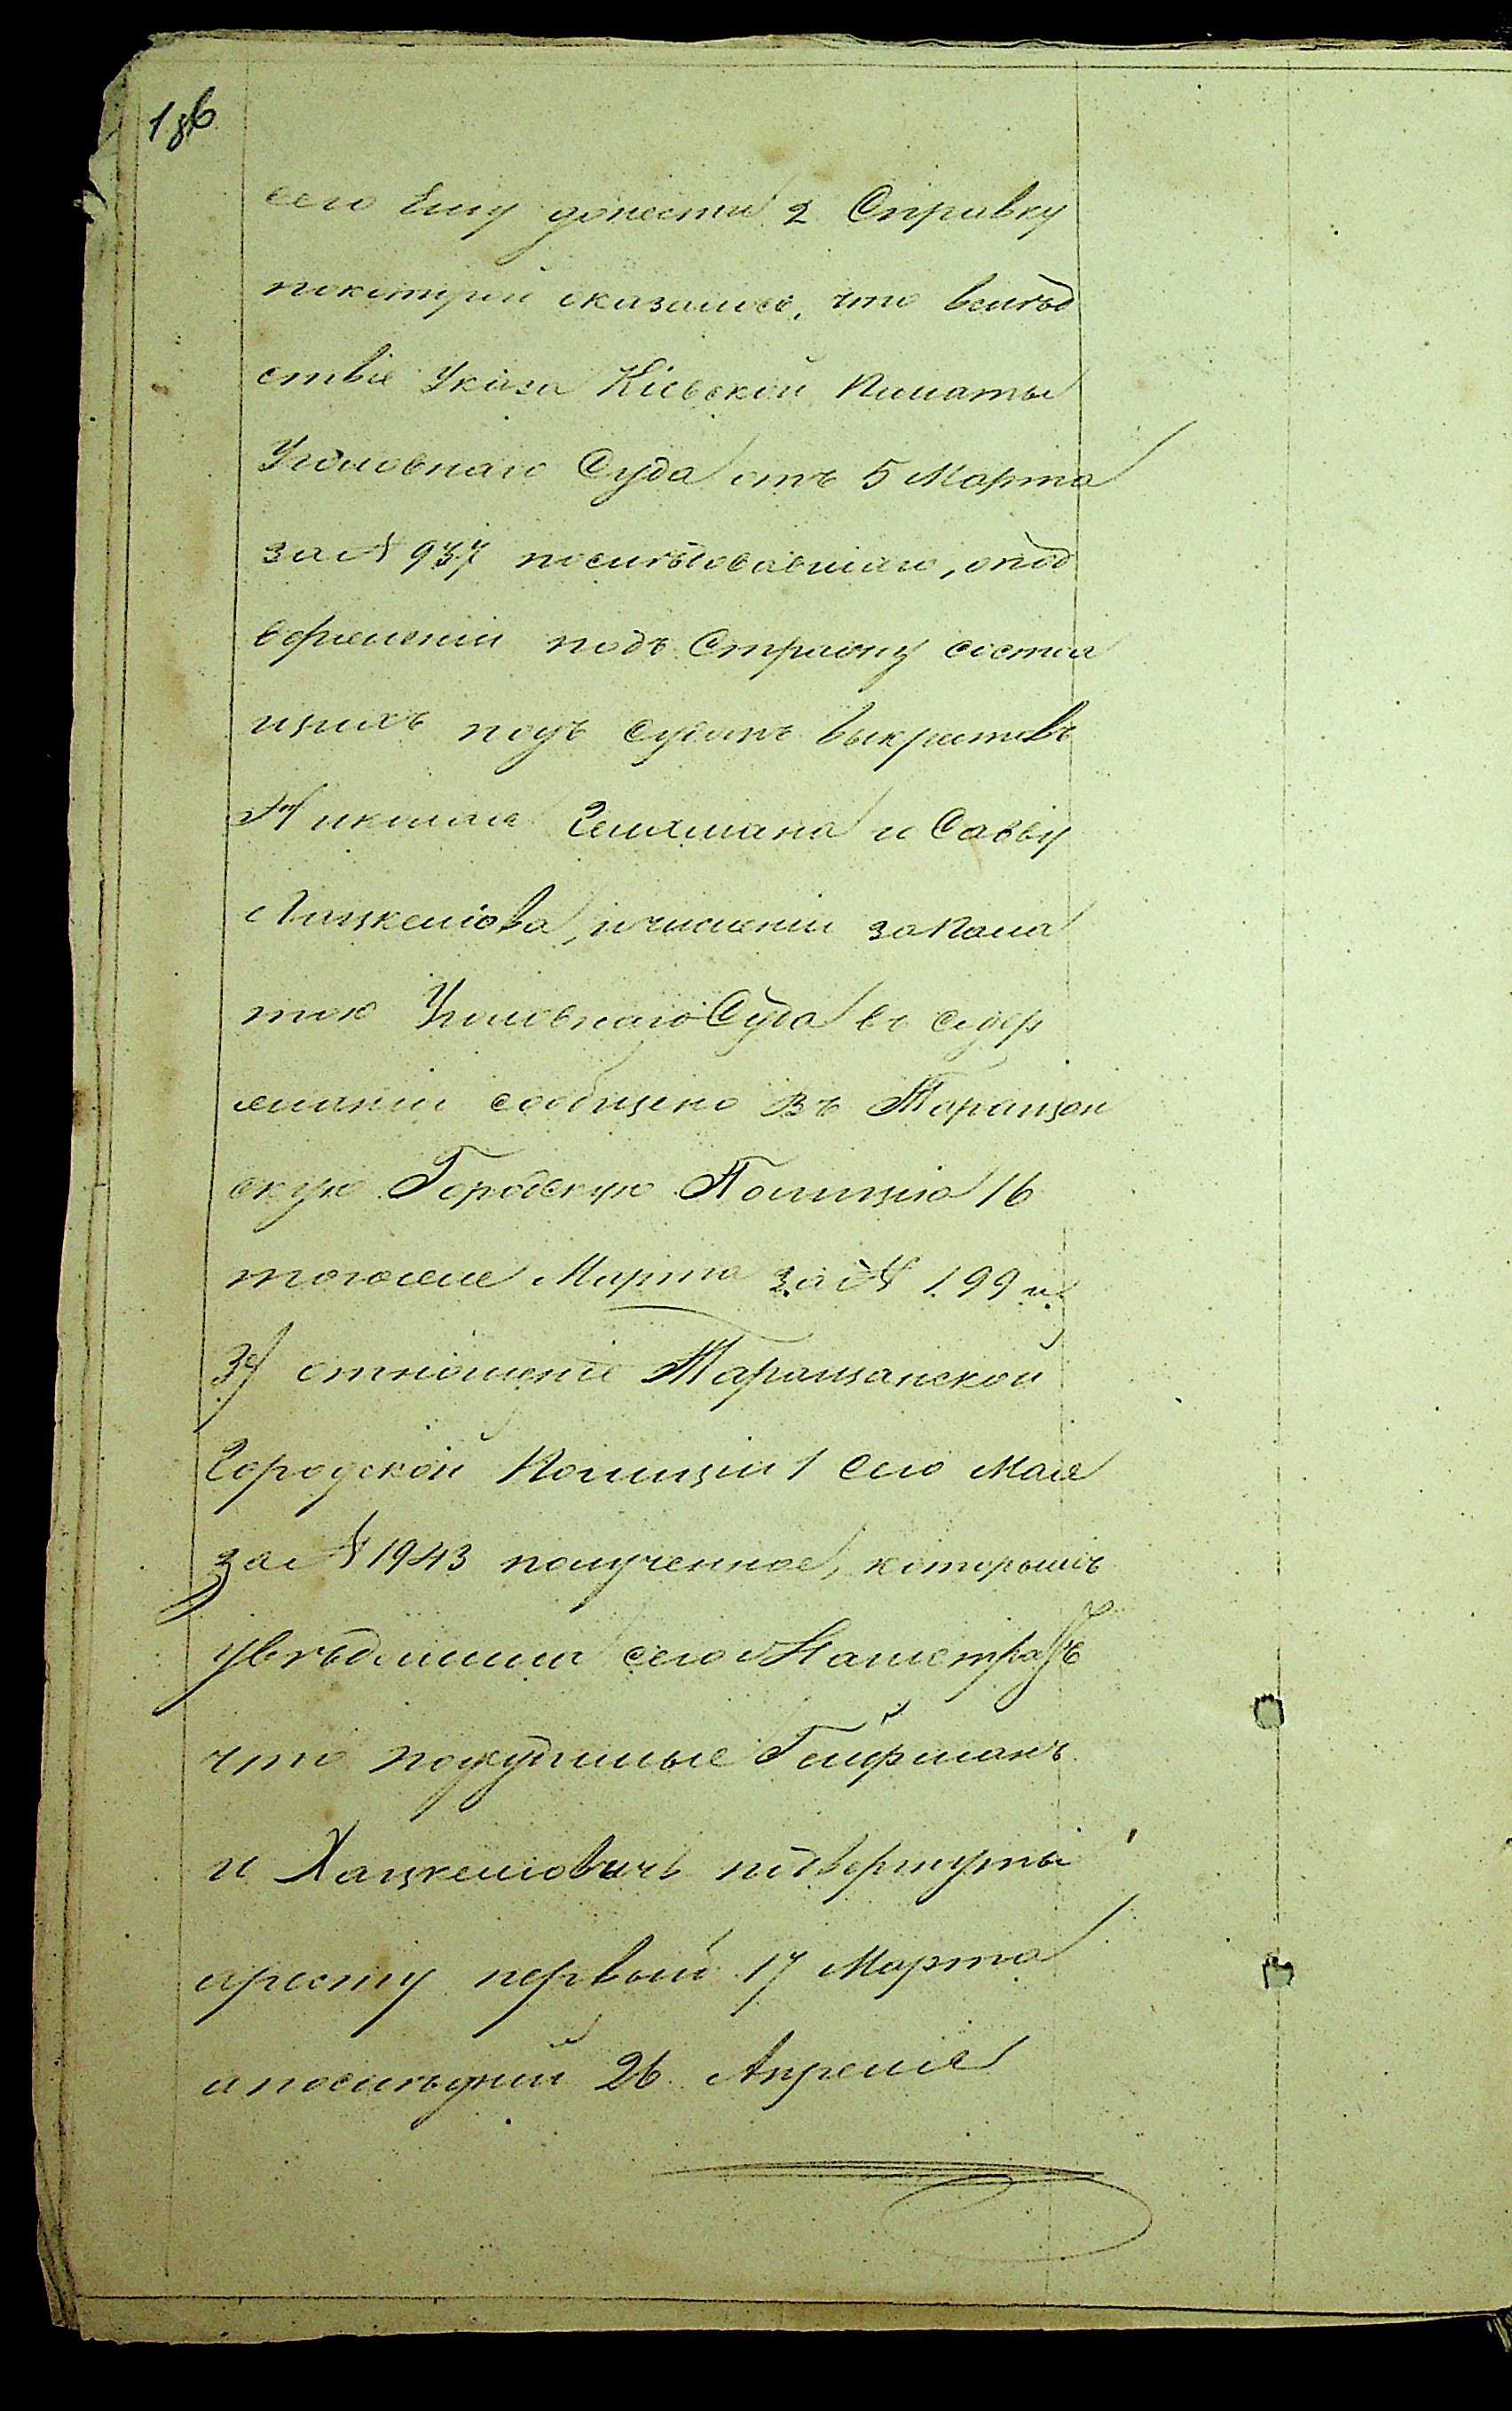 186
сего Ему донести 2 Справку
покоторой оказалось, что вслѣд
ствіе Указа Кіевской Палаты
Уголовнаго Суда отъ 5 Марта
за № 937 послѣдовавшаго, опод
верженіи подъ Стражу состоя
щихъ подъ Судомъ выкрестовъ
Николая и Савву
Хацкеліова, ичисленіи заПала
тою Уголовнаго Суда въ содер
жаніи сообщено Въ Таращан
скую Городскую Полицію 16
тогоже Марта за № 199 и
3е/ отношеніе Таращанской
Городской Полиціи 1 Сего Мая
за № 1943 полученное, которымъ
увѣдомила сего Магистратъ
что подсудимые Гойфманъ
и Хацкелiовичъ подвергнуты
аресту первый 17 Марта
а послѣдній 26 Апреля